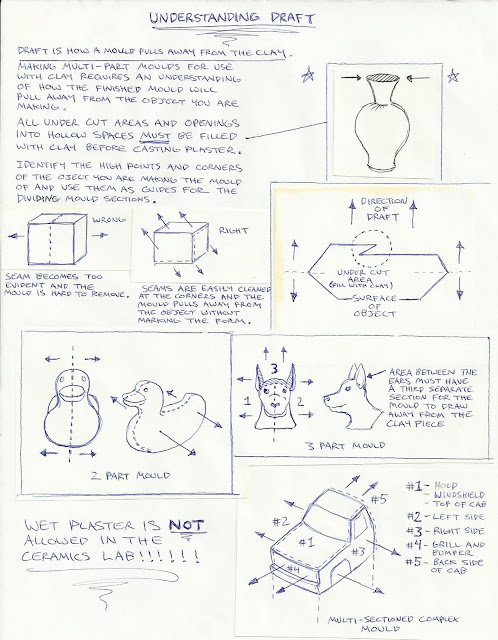 UNDERSTANDING DRAFT
DRAFT IS HOW A MOULD PULLS AWAY FROM THE CLAY.
MAKING MULTI-PART MOULDS FOR USE
WITH CLAY REQUIRES AN UNDERSTANDING
OF HOW THE FINISHED MOULD WILL
PULL AWAY FROM THE OBJECT YOU ARE
MAKING.
ALL UNDER CUT AREAS AND OPENINGS
INTO HOLLOW SPACES MUST BE FILLED
WITH CLAY BEFORE CASTING PLASTER.
IDENTIFY THE HIGH POINTS AND CORNERS
OF THE OJECT YOU ARE MAKING THE MOULD
OF AND USE THEM AS GUIDES FOR THE
DIVIDING MOULD SECTIONS.
WRONG
SEAM BECOMES TOO
EVIDENT AND THE
MOULD IS HARD TO REMOVE.
RIGHT
SEAMS ARE EASILY CLEANED
AT THE CORNERS AND THE
MOULD PULLS AWAY FROM
THE OBJECT WITHOUT
MARKING THE FORM.
DIRECTION
OF
DRAFT
UNDER CUT
AREA
(FILL WITH CLAY)
SURFACE
OF
OBJECT
2 PART MOULD
1
3
2
AREA BETWEEN THE
EARS MUST HAVE
A THIRD SEPARATE
SECTION FOR THE
MOULD TO DRAW
AWAY FROM THE
CLAY PIECE
3 PART MOULD
WET PLASTER IS NOT
ALLOWED IN THE
CERAMICS LAB!!!!!!
#5
#2
#1
#3
#4
#1 - HOOD
- WINDSHIELD
- TOP OF CAB
#2 - LEFT SIDE
#3 - RIGHT SIDE
#4 - GRILL AND
BUMPER
#5 - BACK SIDE
OF CAB
MULTI-SECTIONED COMPLEX
MOULD